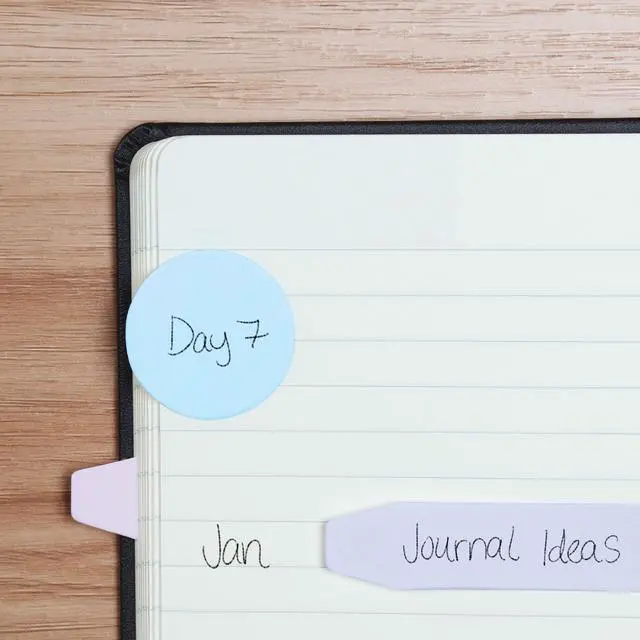 Day 7
Jan Journal Ideas